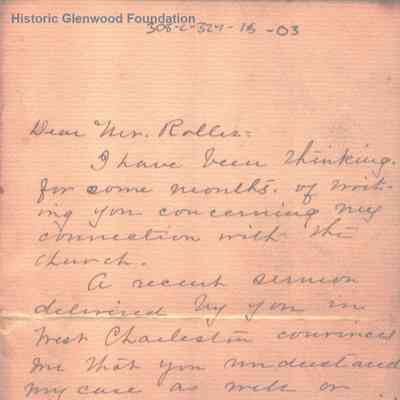 Historic Glenwood Foundation
Dear Mr. Roller:
I have been thinking
for some months of writ-
ing you concerning my
connection with the
church.
A recent sermon
delivered by you in
West Charleston convinces
me that you understand
my case as well or